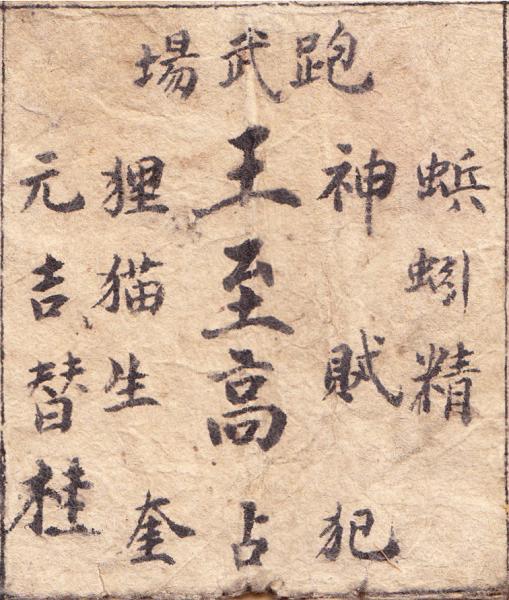 跑武場
蚯蚓精
神賦犯
王至高占
狸猫生奎
元吉替桂